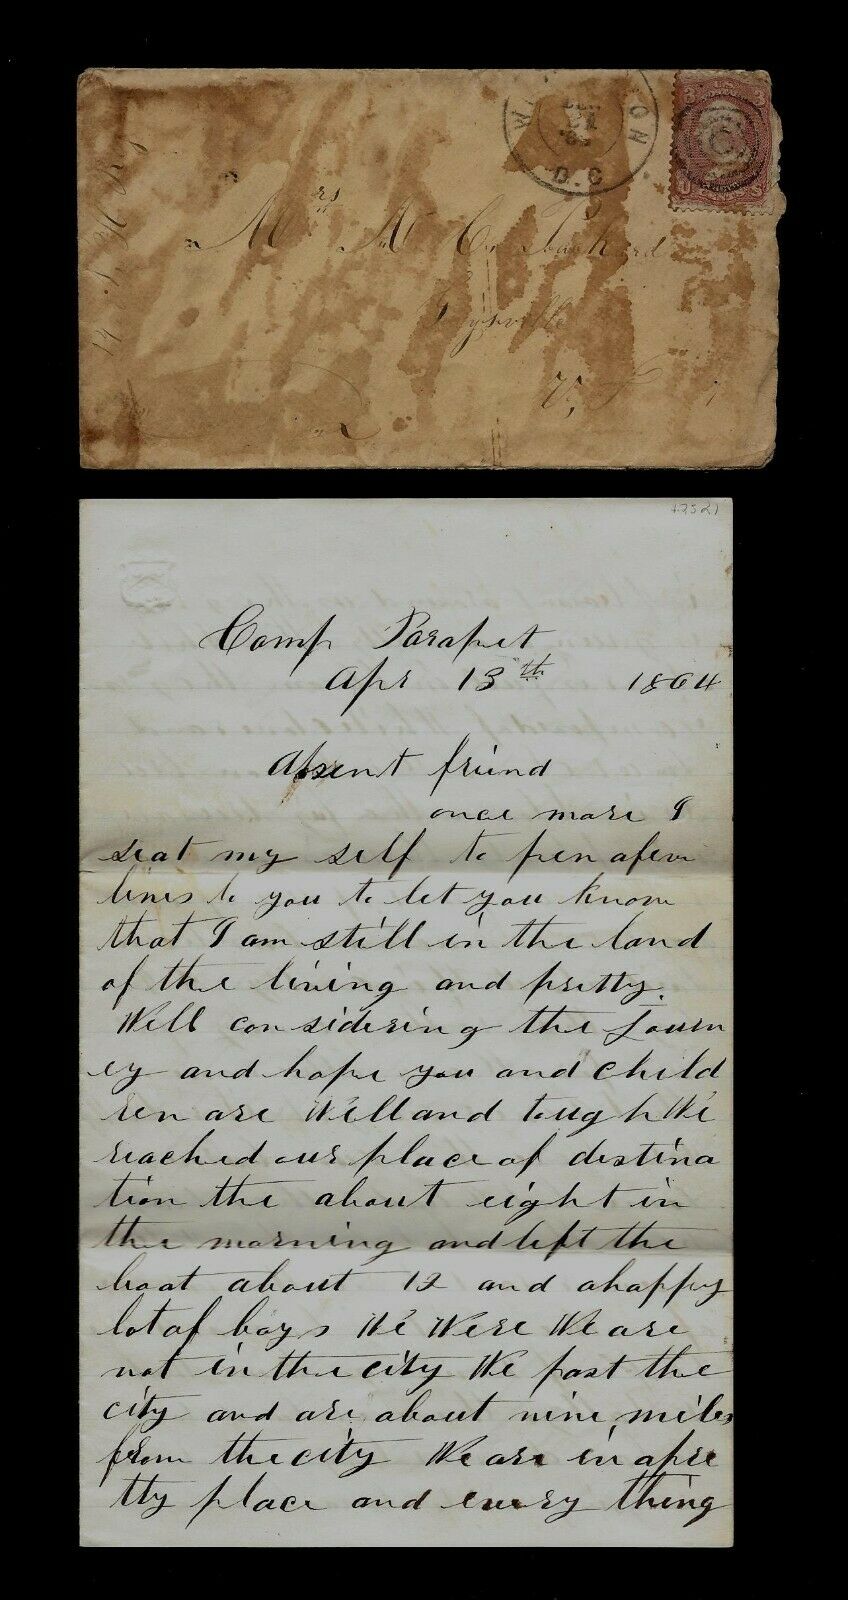 WASHINGTON
D.C.
U.S.
3 3
Mrs A C
Gaysville
Vt
Camp Parapet
Apr 13th 1864
Absent friend
once more I
seat my self to pen afew
lines to you to let you know
that I am still in the land
of the living and pretty
Well considering the Journ
ey and hope you and child
ren are Well and tough We
reached our place of destina
tion the about eight in
the morning and left the
boat about 12 and a happy
lot of boys We Were We are
not in the city We past the
city and are about nine miles
from the city We are in apre
tty place and every thing